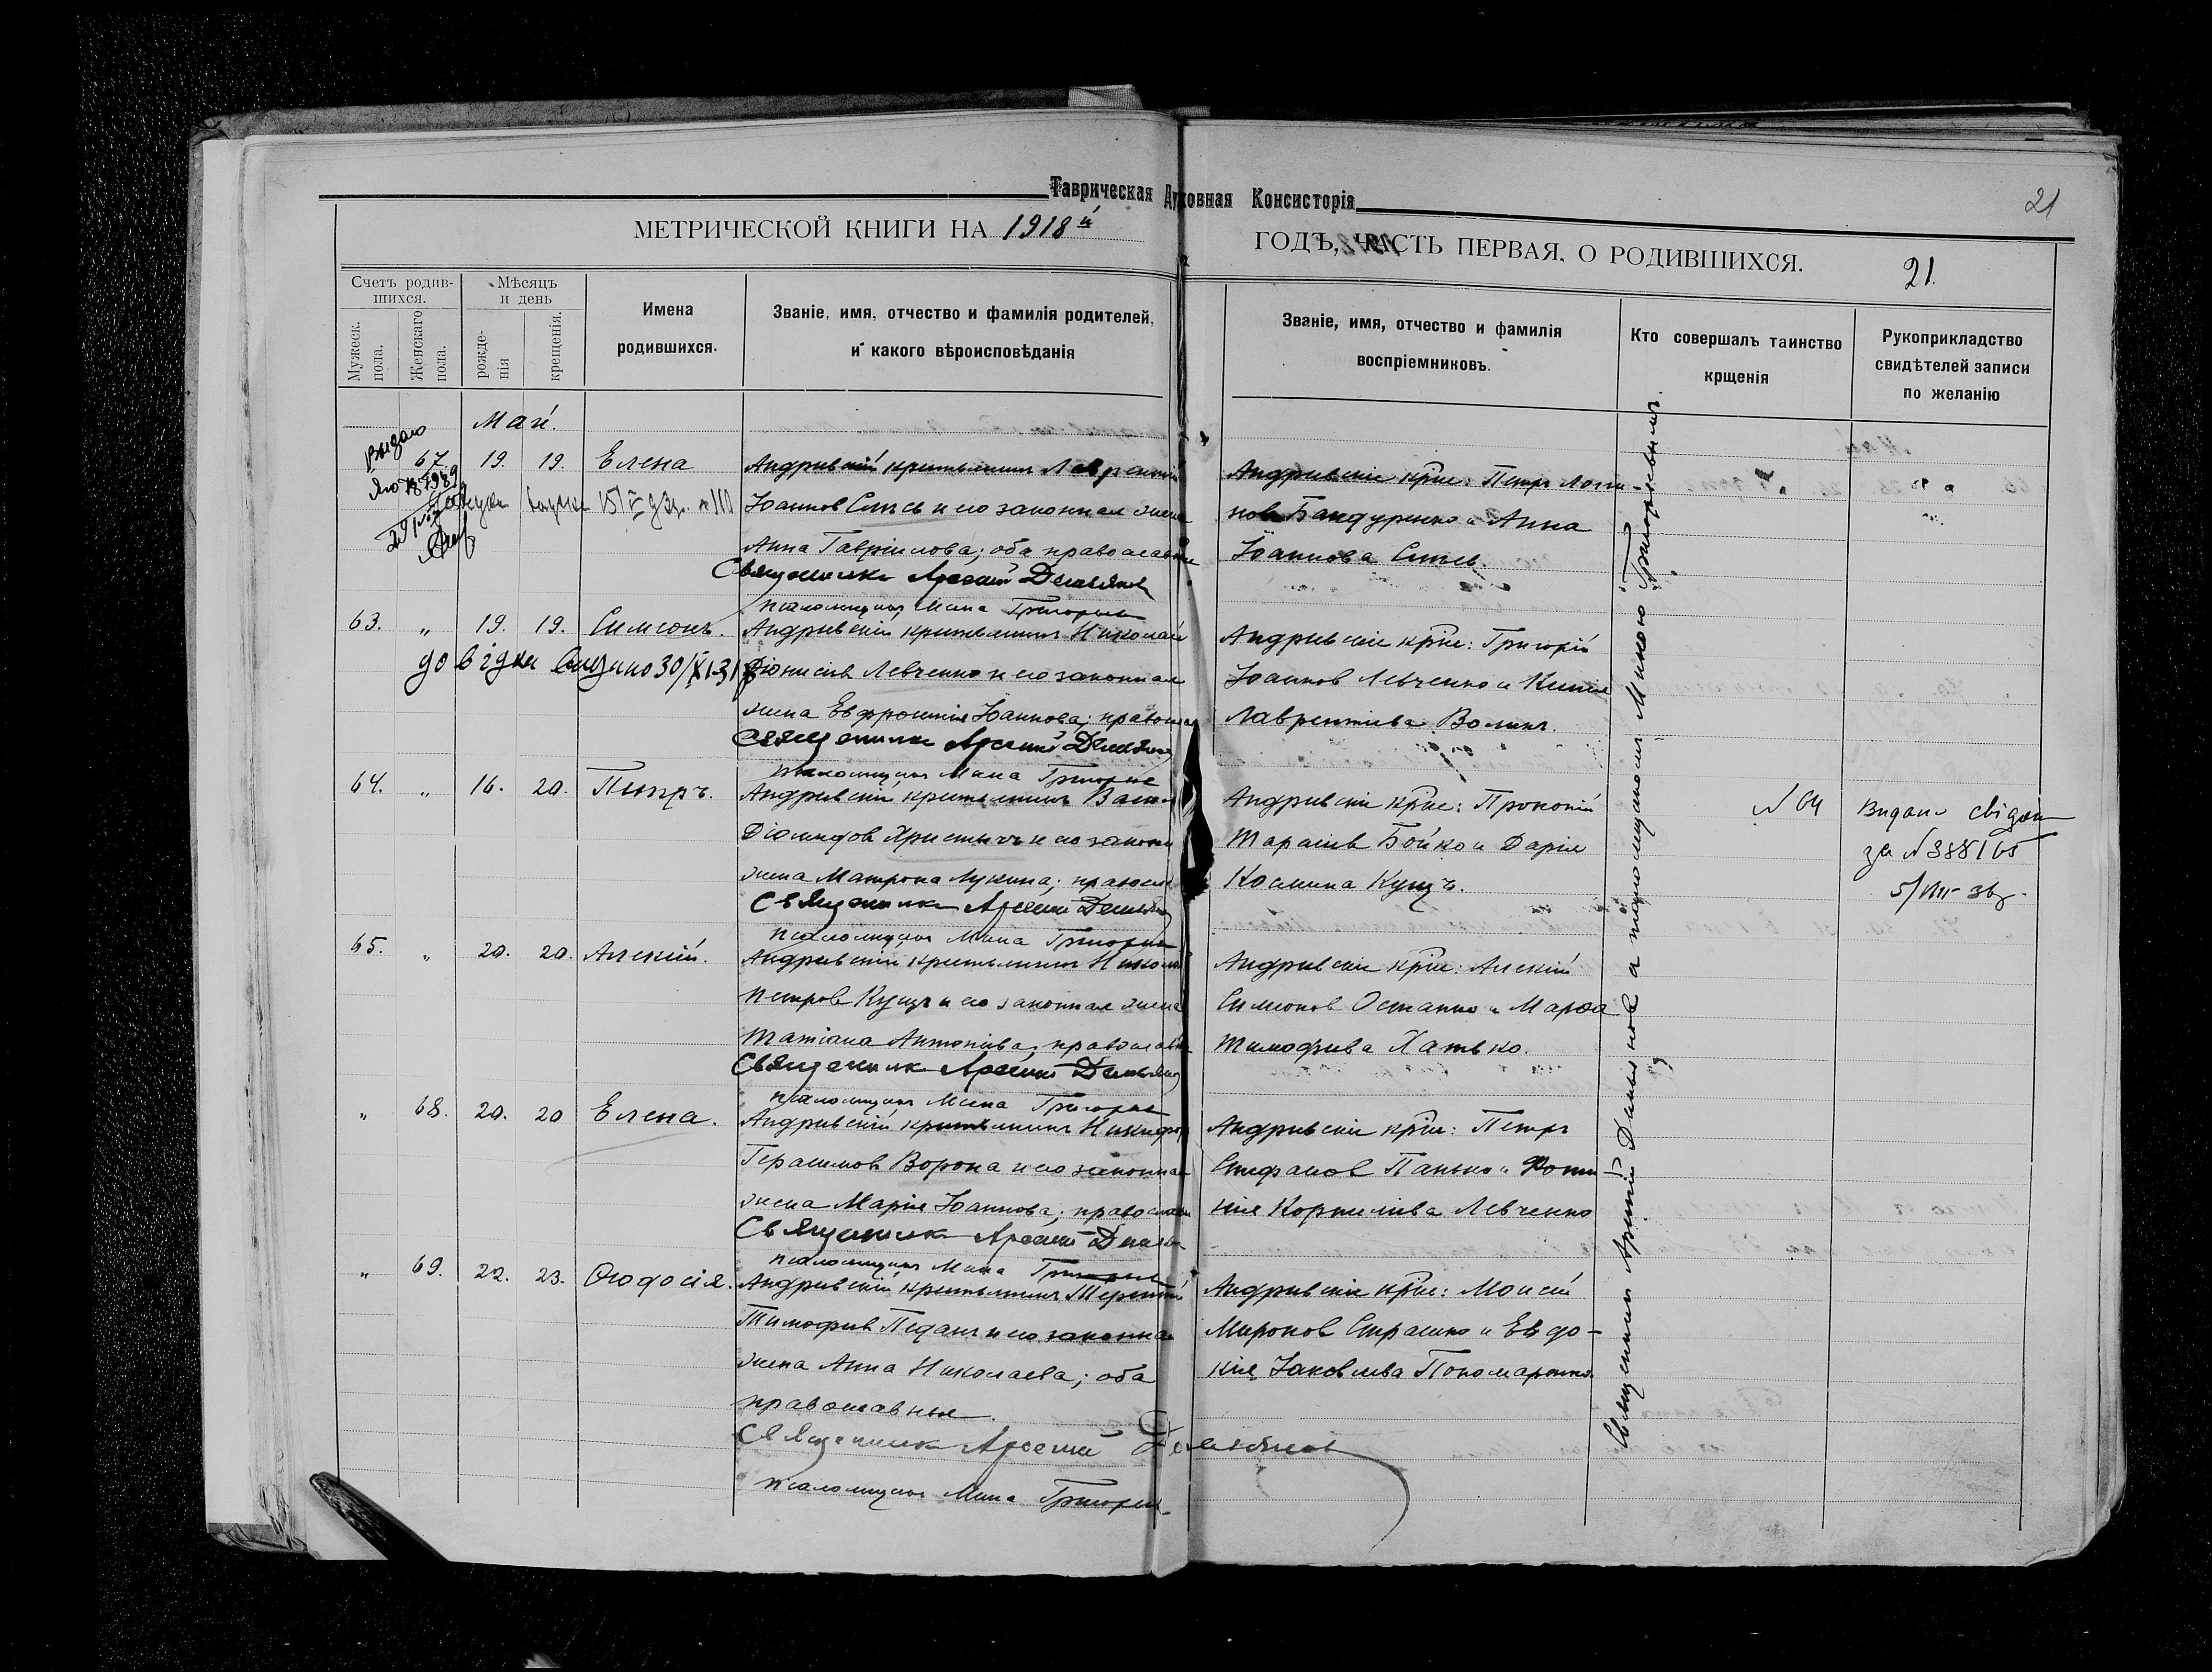 Таврическая Духовная Консисторія
21
МЕТРИЧЕСКОЙ КНИГИ НА 1918й ГОДЪ, ЧАСТЬ ПЕРВАЯ, О РОДИВШИХСЯ.
21.
Счетъ родив-
шихся.
Мужеск.
пола.
Женскаго
пола.
Мѣсяцъ
и день
рожде-
нія
крещенія.
Имена
родившихся.
Званіе, имя, отчество и фамилія родителей,
и какого вѣроисповѣданія
Званіе, имя, отчество и фамилія
воспріемниковъ.
Кто совершалъ таинство
крщенія
Рукоприкладство
свидѣтелей записи
по желанію
Май.
67. 19. 19. Елена
Андреевскій крестьянинъ Лаврентій
Іоанновъ Сипсь и его законная жена
Анна Гавріилова; оба православные
Священникъ Арсеній Демьяновъ
псаломщикъ Мина Григорьев
Андреевскіе кр̃не: Петръ Логи-
новъ Бандуренко и Анна
Іоаннова Сипсь.
63. " 19. 19. Симеонъ.
довідка видано 30/XI-31
Андреевскій крестьянинъ Николай
Діонисіевъ Левченко и его законная
жена Евфросинія Іоаннова; правосла
Священникъ Арсеній Демьянов
псаломщикъ Мина Григорьев
Андреевскіе кр̃не: Григорій
Іоанновъ Левченко и Ксенія
Лаврентіева Воликъ.
64. " 16. 20. Петръ.
Андреевскій крестьянинъ Васил
Діомидовъ Христичъ и его законн
жена Матрона Лукина; правосл
Священникъ Арсеній Демьянов
псаломщикъ Мина Григорьев
Андреевскіе кр̃не: Прокопій
Тарасіевъ Бойко и Дарія
Космина Кущъ.
N 64
Видано свідоц
за N 388165
65. " 20. 20. Алексій.
Андреевскій крестьянинъ Никола
Петровъ Кущъ и его законная жена
Татіана Антоніева; православн
Священникъ Арсеній Демьянов
псаломщикъ Мина Григорьев
Андреевскіе кр̃не: Алексій
Симеоновъ Остапко и Марѳа
Тимофеева Хатько.
" 68. 20. 20 Елена.
Андреевскій крестьянинъ Никифор
Герасимовъ Ворона и его законная
жена Марія Іоаннова; православн
Священникъ Арсеній Демьян
псаломщикъ Мина Григорьев
Андреевскіе кр̃не: Петръ
Стефановъ Панько и Фоти-
нія Корниліева Левченко
" 69. 22. 23. Ѳеодосія.
Андреевскій крестьянинъ Терентій
Тимофеевъ Педанъ и его законная
жена Анна Николаева; оба
православные.
Священникъ Арсеній Демьянов
псаломщикъ Мина Григорьев
Андреевскіе кр̃не: Моисей
Мироновъ Страшко и Евдо-
кія Іаковлева Пономаренко.
Священникъ Арсеній Демьяновъ а псаломщикомъ Миною Григорьевымъ.